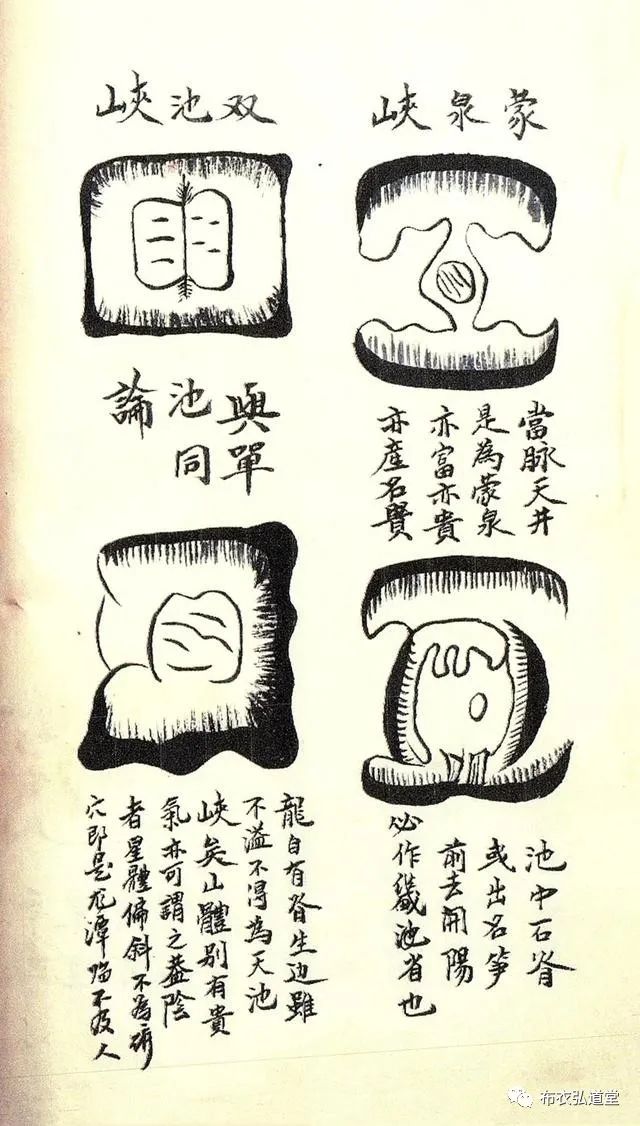 蒙泉峽
當脉天井
是為蒙泉
亦富亦貴
亦產名賢
双池峽
與單
池同
論
池中石脊
或出名笋
前去開陽
必作畿池省也
龍自有脊生边雖
不溢不得為天池
峽矣山體別有貴
氣亦可謂之葢陰
者星體偏斜不為
穴即是龙潭不及人
布衣弘道堂